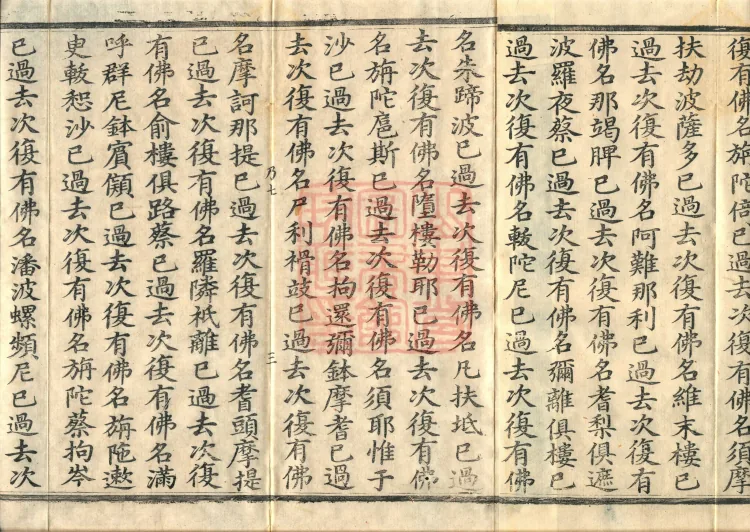 復有佛名旃陀倍已過去次復有佛名須摩
扶劫波薩多已過去次復有佛名維末樓已
過去次復有佛名阿難那利已過去次復有
佛名那竭脾已過去次復有佛名耆梨俱遮
波羅夜蔡已過去次復有佛名彌離俱樓已
過去次復有佛名軷陀尼已過去次復有佛
名朱蹄波已過去次復有佛名凡扶坻已過
去次復有佛名墮樓勒耶已過去次復有佛
名旃陀扈斯已過去次復有佛名須耶惟于
沙已過去次復有佛名拘還彌鉢摩耆已過
去次復有佛名尸利滑攱已過去次復有佛
乃七 三
名摩訶那提已過去次復有佛名耆頭摩提
已過去次復有佛名羅隣祇離已過去次復
有佛名俞樓俱路蔡已過去次復有佛名滿
呼群尼鉢賓頿已過去次復有佛名旃陁遬
臾軷恕沙已過去次復有佛名旃陀蔡拘岑
已過去次復有佛名潘波螺頻尼已過去次